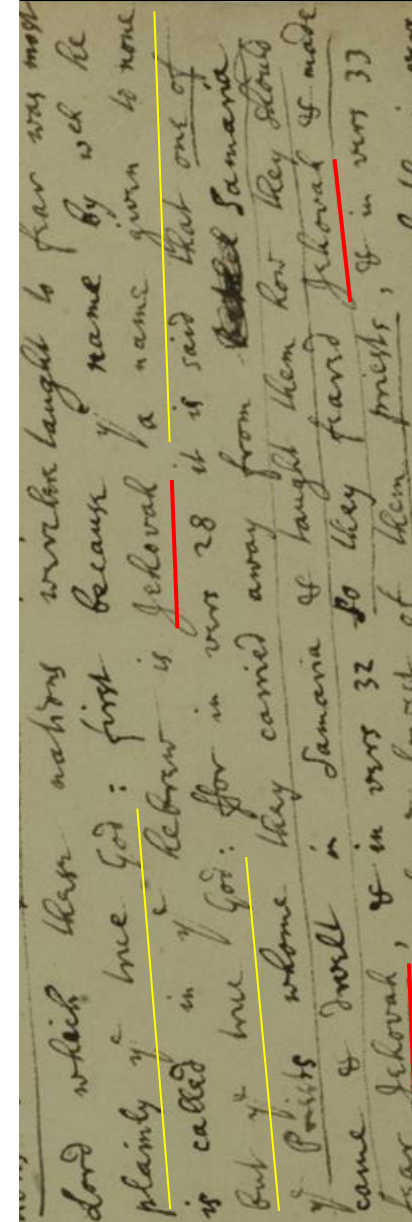 Lord which these nations were taught to fear was most
plainly yᵉ true God: first because yᵉ name by wch he
is called in yᵉ hebrew is Jehovah a name given to none
but yᵉ true God: ffor in vers 28 it is said that one of
yᵉ Priests whome they carried away from Samaria
came & dwelt in Samaria & taught them how they should
fear Jehovah, & in vers 32 So they feared Jehovah & made
of them priests, & in vers 33